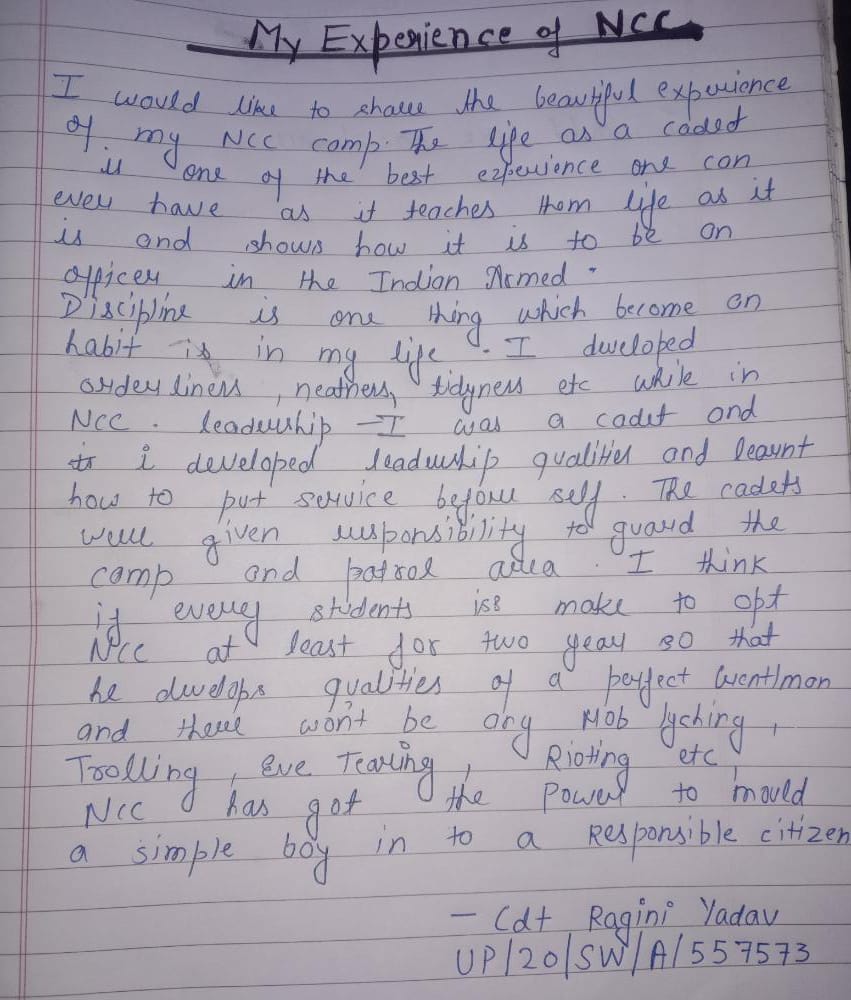 My Experience of NCC
I would like to share the beautiful experience
of my NCC camp. The life as a caded
is one of the best ezperience one can
ever have as it teaches them life as it
is and shows how it is to be an
officer in the Indian Armed.
Discipline is one thing which become an
habit is in my life. I dweloped
orderliness, neatness, tidyness etc while in
NCC. leadership - I was a cadet and
i developed leadership qualities and learnt
how to put service before self. The cadets
were given responsibility to guard the
camp and patrol area. I think
if every students is make to opt
NCC at least for two year so that
he dwelops qualities of a perfect Gentlman
and there won't be any Mob lyching,
Trolling, Eve Tearing, Rioting etc
NCC has got the power to mould
a simple boy in to a Responsible citizen
- Cdt Ragini Yadav
UP/20/SW/A/557573